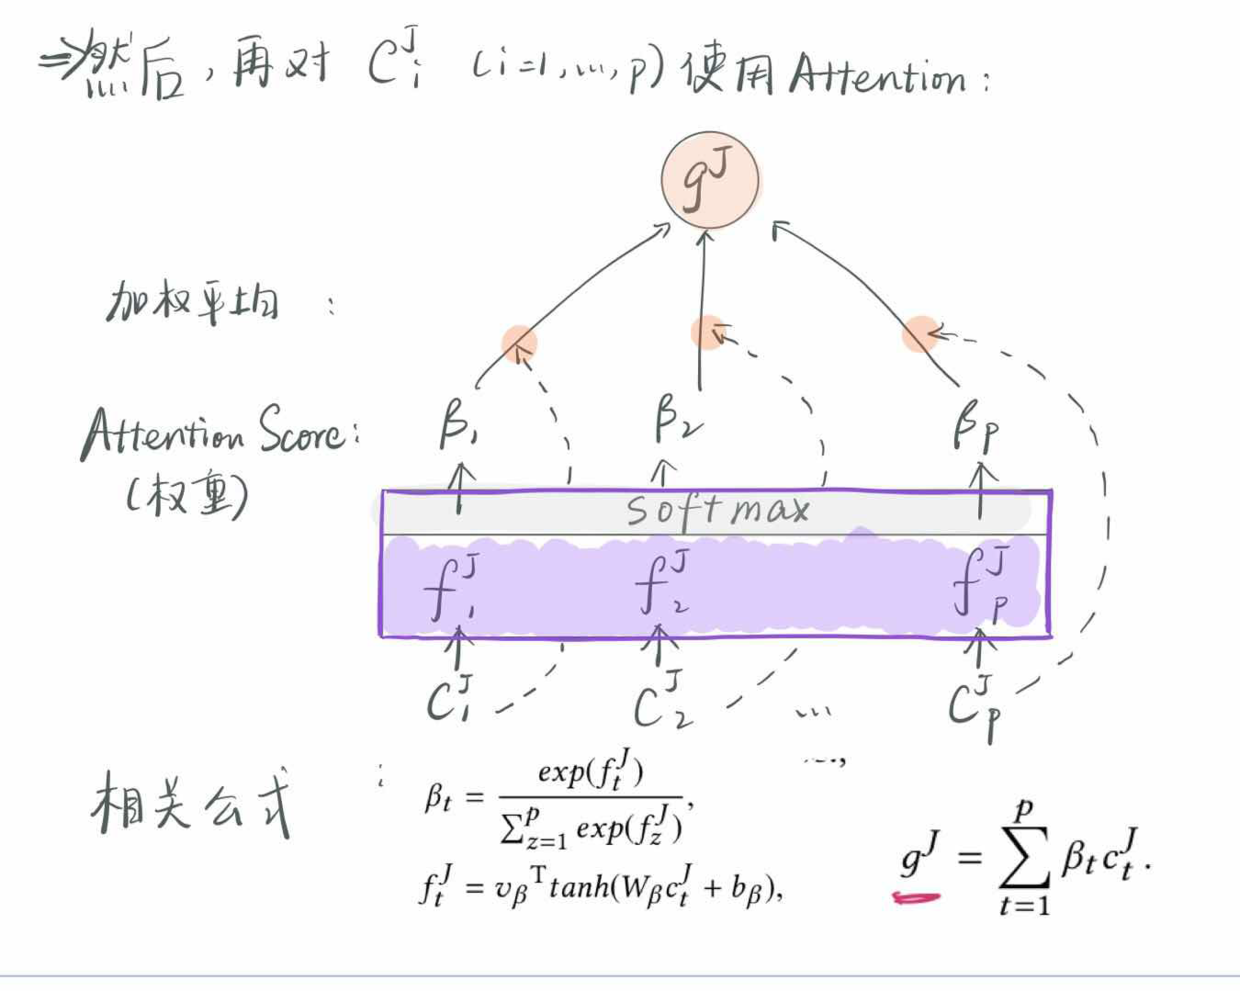 ⇒然后,再对 C_i^J (i=1,...,p)使用Attention:
g^J
加权平均 :
Attention Score: β_1 β_2 β_p
(权重)
softmax
f_1^J f_2^J f_p^J
C_1^J C_2^J ... C_p^J
相关公式 :
β_t = exp(f_t^J) / ∑_{z=1}^p exp(f_z^J),
f_t^J = v_β^T tanh(W_β c_t^J + b_β),
g^J = ∑_{t=1}^p β_t c_t^J.